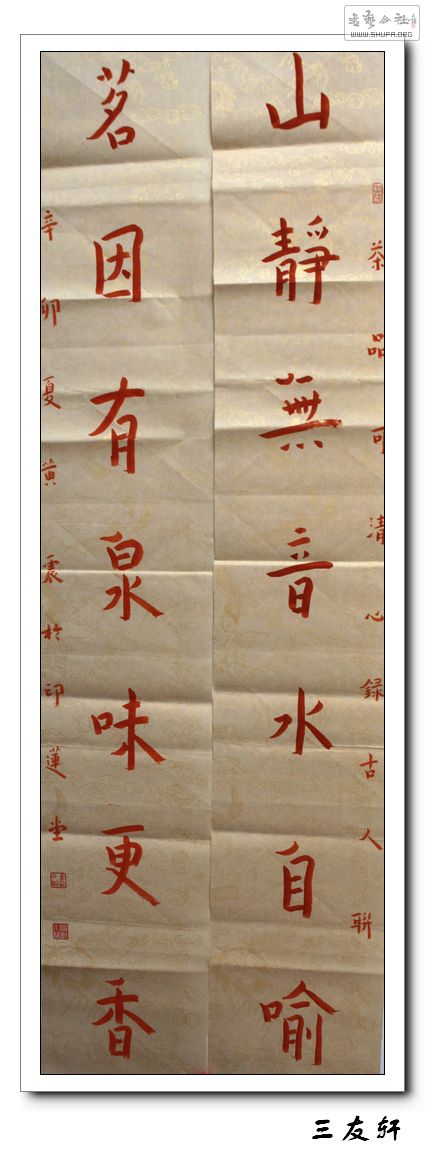 書藝公社
WWW.SHUFA.ORG
茶品可清心錄古人聯
山靜無音水自喻
茗因有泉味更香
辛卯夏黄震於印蓮堂
三友轩